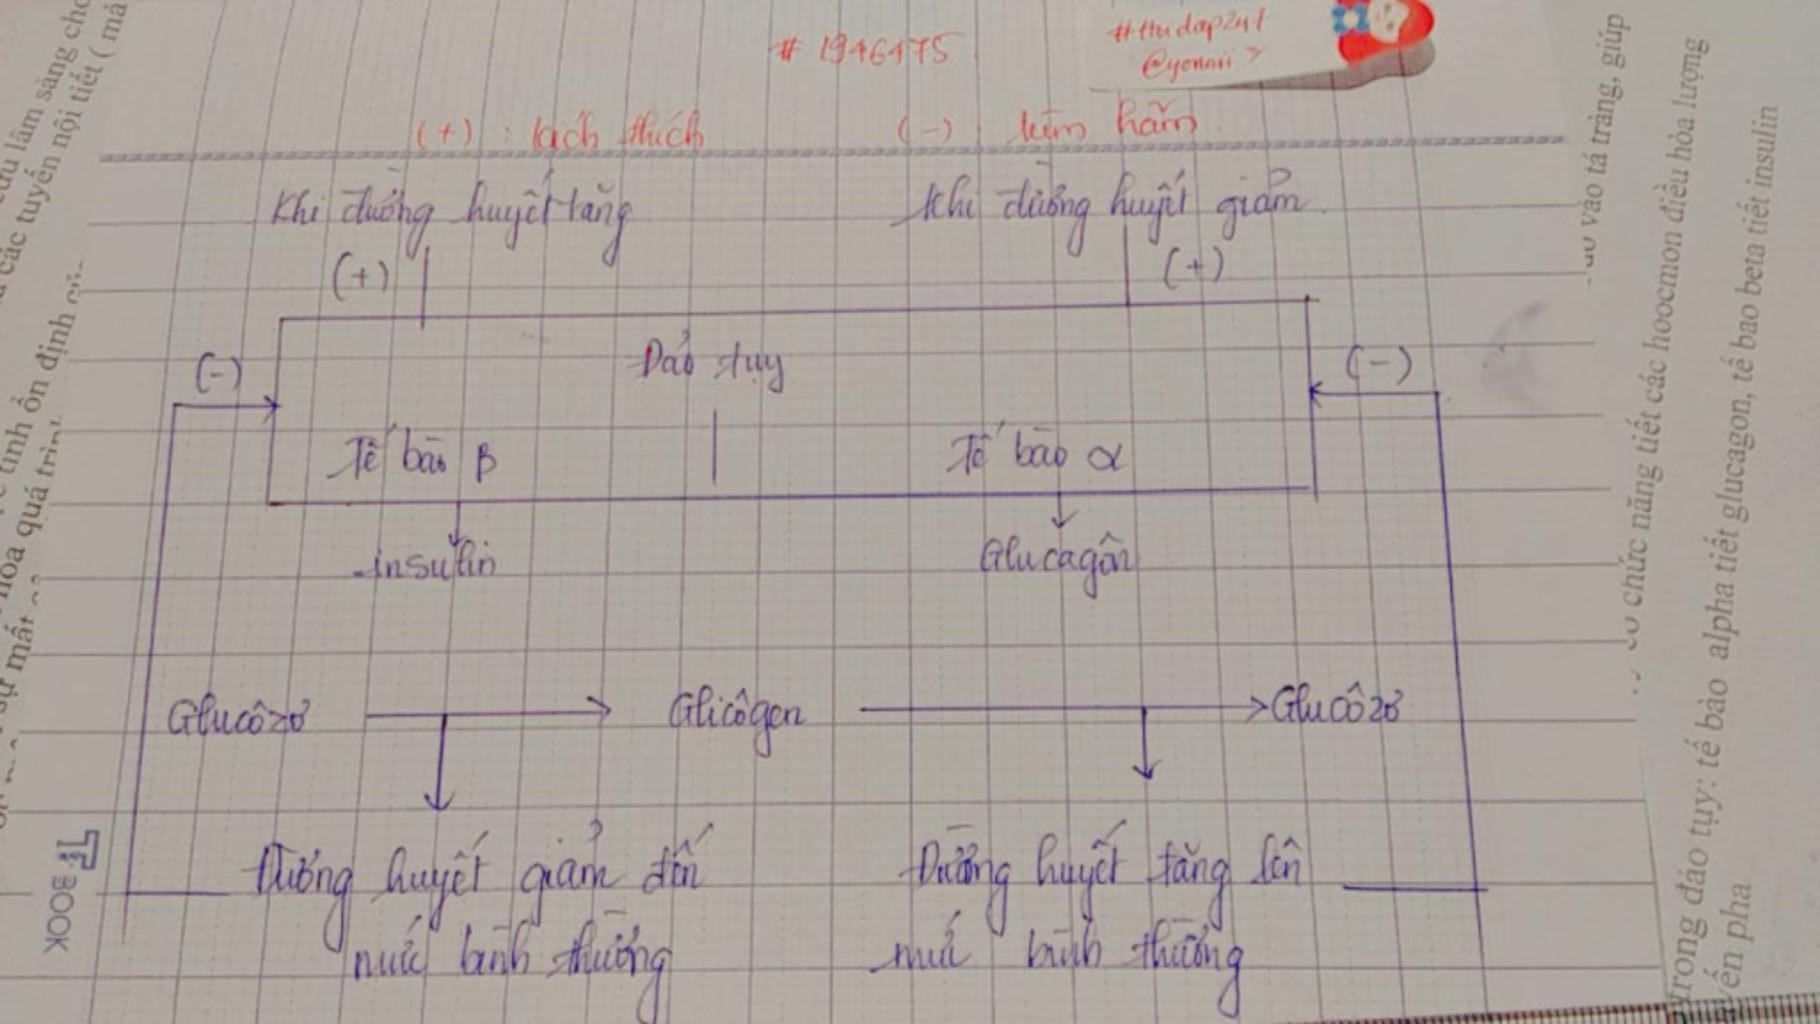 # 1946475
#thudap247
@yennii
(+) : kích thích (-) kìm hãm
Khi đường huyết tăng Khi đường huyết giảm
(+) (+)
Đảo tụy
(-) (-)
Tế bào β Tế bào α
insulin Glucagôn
Glucôzơ Glicôgen Glucôzơ
Đường huyết giảm đến Đường huyết tăng lên
mức bình thường mức bình thường
TP BOOK
lâm sàng cho
các tuyến nội tiết ( mà
tính ổn định
hòa quá trình
sự mất
vào tá tràng, giúp
có chức năng tiết các hoocmon điều hòa lượng
Trong đảo tụy: tế bào alpha tiết glucagon, tế bao beta tiết insulin